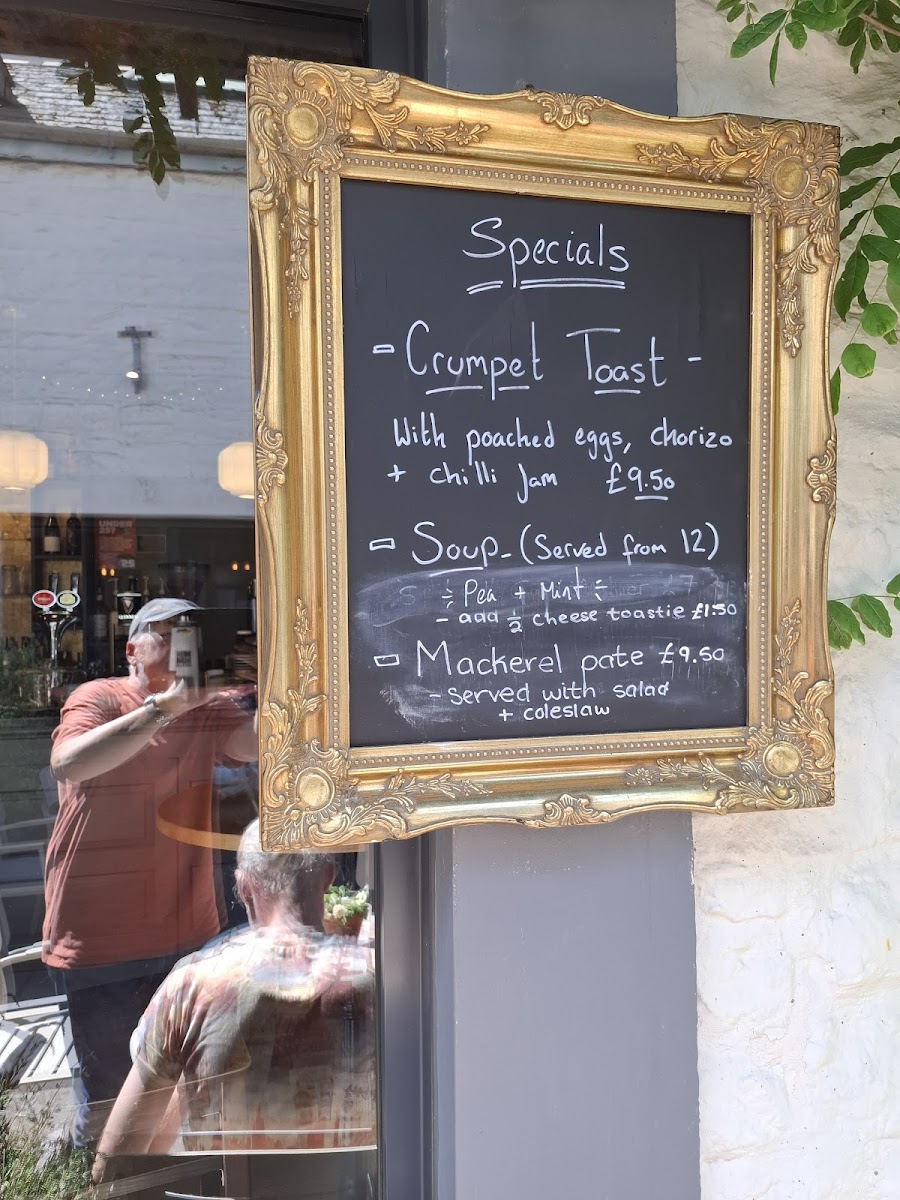 Specials
- Crumpet Toast -
With poached eggs, chorizo
+ chilli Jam £9.50
- Soup - (Served from 12)
Pea + Mint
- add ½ cheese toastie £1.50
- Mackerel pate £9.50
- Served with salad
+ coleslaw
UNDER